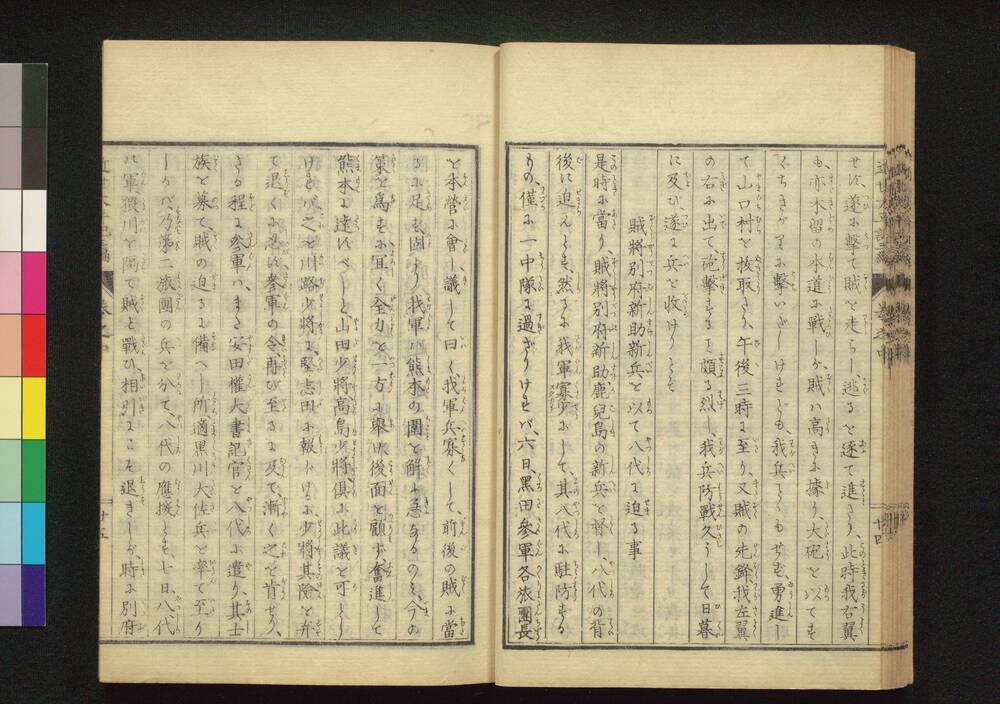 せバ、遂に撃て賊を走らし、逃るを逐て進さり、此時我右翼
も、亦木留の本道に戦しが賊ハ高きに據り、大砲を以ても
くちきが里に撃いだしけれども、我兵しもせず、勇進し
て山口村を抜取さり、午後三時に至り、又賊の先鋒我左翼
の右に出て、砲撃する頗る烈し、我兵防戦久うして日暮
に及び遂に兵を收けりとぞ
賊將別府新助新兵を以て八代に迫る事
是時に當り、賊將別府新助鹿兒島の新兵を督し、八代の背
後に迫んとす、然るに我軍寡少にして、其八代に駐防する
もの、僅に一中隊に過ざりけれバ、六日、黒田參軍各旅團長
を本營に會し議して曰く、我軍兵寡くして、前後の賊に當
るに足も、固より我軍ハ熊本の圍を解に急なるのミ、今の
策を為もに宜く全力を一方に舉け後面を顧ず、奮進して
熊本に達スべしと、山田少將高島少將俱に此議を可とし
けれバ、之を川路少將に、堅志田に報しけるに、少將其險を弃
て退くに忍ず參軍の令再び至るに及て、漸く之を肯せり、
さる程に參軍ハ、また安田權大書記官を八代に遣り、其士
族を募て、賊の迫るに備へし所適黒川大佐兵を率て至り
しかバ、乃第二旅團の兵を分て、八代の應援とす、七日八代
に軍假川を隔て賊と戰ひ、相引にこそ退きしが、時に別府
卷之四
廿四
廿五